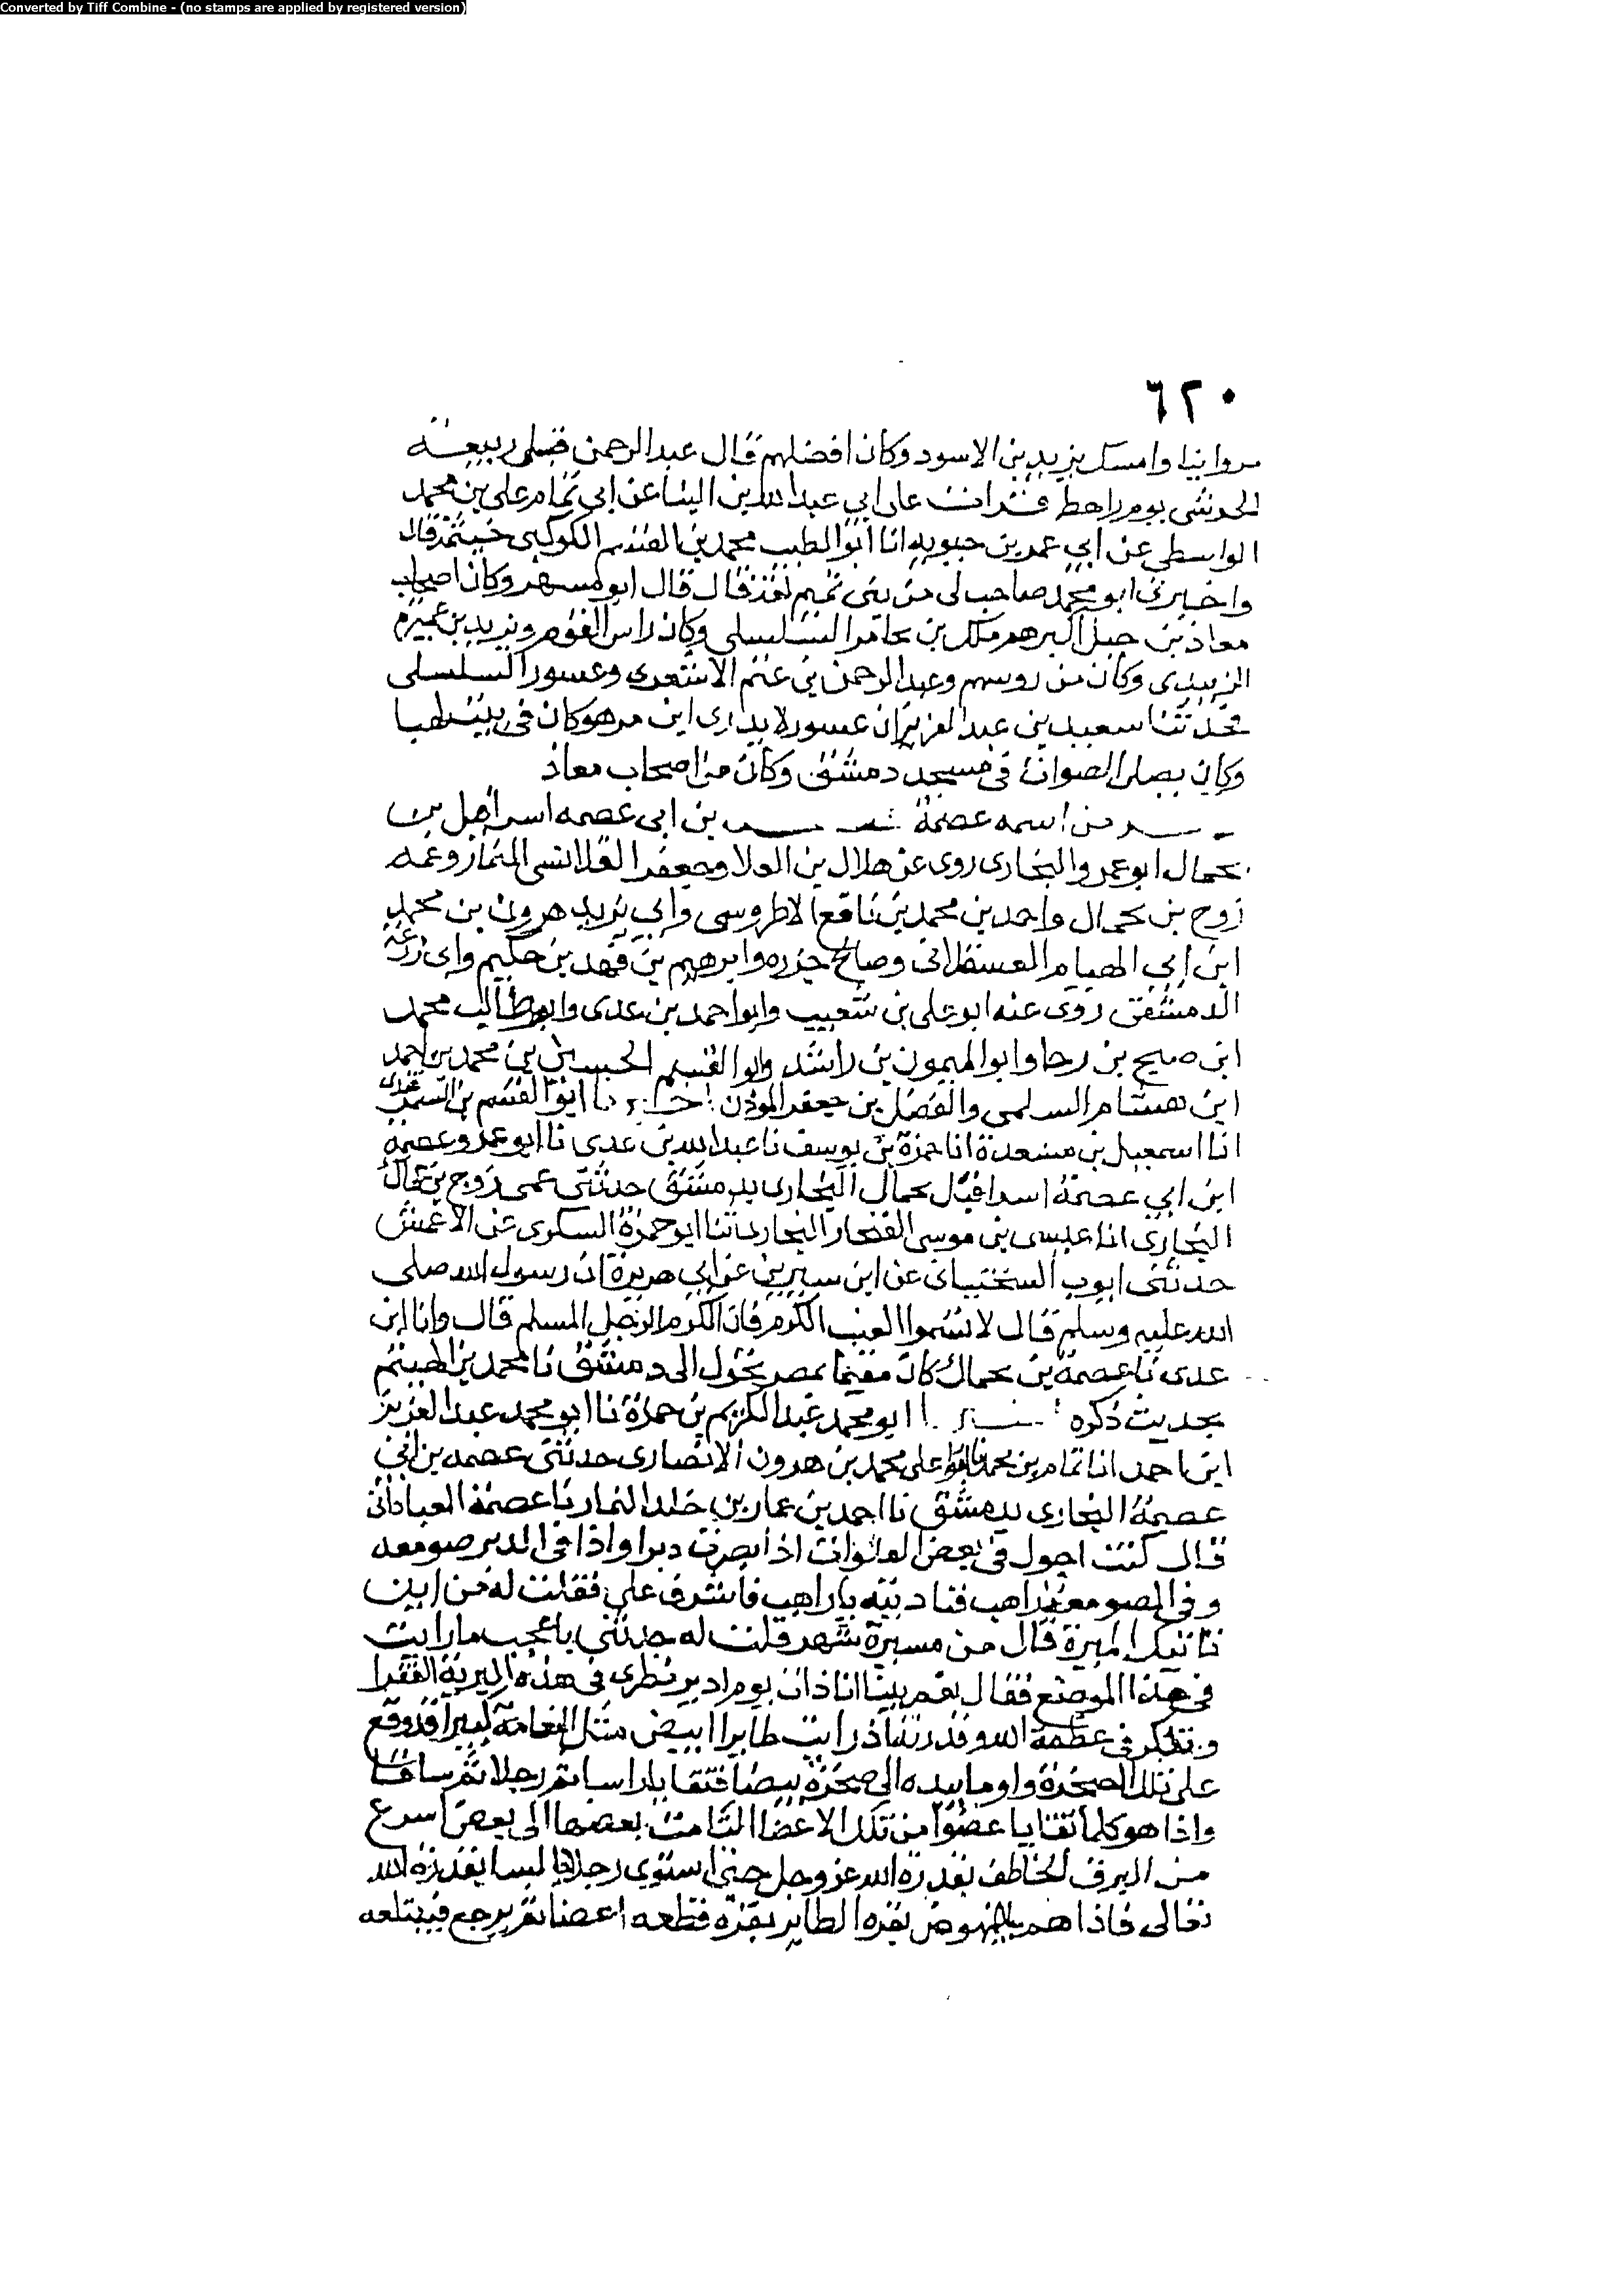 Converted by Tiff Combine - (no stamps are applied by registered version)
٦٢٠
مروانيا وامسك يزيد بن الاسود وكان افضلهم قال عبد الرحمن فتلى ربيعة
الحرشى يوم راهط قرات على ابي عبد الله بن البنا عن ابي تمام على بن محمد
الواسطى عن ابي عمر بن حيويه انا ابو الطيب محمد بن القسم الكوكبى خيثمة قال
واخبرنى ابو محمد صاحب لى من بنى تميم ثقة قال قال ابو مسهر وكان اصحاب
معاذ بن جبل اكبرهم ملك بن يخامر السكسكى وكان راس القوم ويزيد بن عميرة
الزبيدى وكان من روسهم وعبد الرحمن بن غنم الاشعرى وعسور السلسلى
فحدثنا سعيد بن عبد العزيز ان عسور لا يدرى ابن من هو كان فى بيت لهيا
وكان يصلى الصلوات فى مسجد دمشق وكان من اصحاب معاذ
من اسمه عصمة بن ابى عصمه اسرافيل بن
بجماك ابو عمرو البخارى روى عن هلال بن العلا وجعفر القلانسى الخباز وعمه
زوج بن بجماك واحمد بن محمد بن نافع الاطروسى وابي يزيد هرون بن محمد
ابن ابي الهيام العسقلانى وصالح جزره وابرهيم بن فهد بن حكيم وابى زرعة
الدمشقى روى عنه ابو على بن شعيب وابو احمد بن عدى وابو طالب محمد
ابن صبيح بن رجا وابو الميمون بن راشد وابو القسم الحسين بن محمد بن احمد
ابن هشام السلمى والفضل بن جعفر الموذن اخبرنا ابو القسم بن السمرقندى
انا اسمعيل بن مسعدة انا حمزة بن يوسف نا عبد الله بن عدى نا ابو عمرو عصمة
ابن ابي عصمة اسرافيل بجماك البخارى بدمشق حدثنى عمى زوج بن بجماك
البخارى انا عيسى بن موسى الغنجار البخارى ثنا ابو حمزة السكرى عن الاعمش
حدثنى ايوب السختيانى عن ابن سيرين عن ابي هريرة ان رسول الله صلى
الله عليه وسلم قال لا تسموا العنب الكرم فان الكرم الرجل المسلم قال وانا ابن
عدى نا عصمة بن بجماك كان مقيما بمصر تحول الى دمشق نا محمد بن الهيثم
بحديث ذكره اخبرنا ابو محمد عبد الكريم بن حمزة نا ابو محمد عبد العزيز
ابن احمد انا تمام بن محمد نا ابو على محمد بن هرون الانصارى حدثنى عصمه بن ابى
عصمة البخارى بدمشق نا احمد بن عمار بن خالد التمار نا عصمة العبادانى
قال كنت اجول فى بعض الفلوات اذ ابصرت ديرا واذا فى الدير صومعه
وفى الصومعة راهب فناديته يا راهب فاشرف على فقلت له من اين
تاتيك الميرة قال من مسيرة شهر قلت له حدثنى باعجب ما رايت
فى هذا الموضع فقال نعم بينا انا ذات يوم ادير نظرى فى هذه البرية القفرا
وتفكر فى عظمة الله وقدرته اذ رايت طايرا ابيض مثل النعامة كبيرا قد وقع
على تلك الصخرة واوما بيده الى صخرة بيضا فتقايا راسا ثم رجلا ثم ساقا
واذا هو كلما تقايا عضوا من تلك الاعضا التامت بعضها الى بعض اسرع
من البرق الخاطف بقدرة الله عز وجل حتى استوى رجلا جالسا بقدرة الله
تعالى فاذا هم بالنهوض نقره الطاير نقرة فقطعه اعضا ثم يرجع فيبتلعه